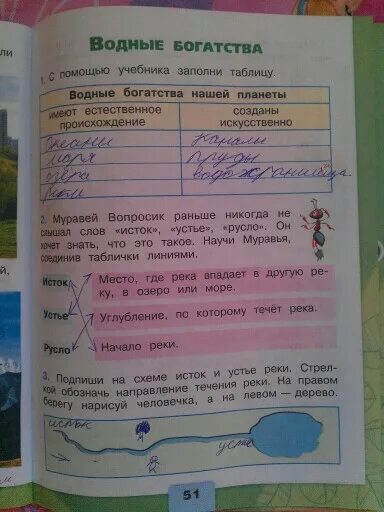 ВОДНЫЕ БОГАТСТВА
1. С помощью учебника заполни таблицу.
Водные богатства нашей планеты
имеют естественное происхождение
созданы искусственно
океани каналы
моря пруды
озёра водохранилища
реки
2. Муравей Вопросик раньше никогда не
слышал слов «исток», «устье», «русло». Он
хочет знать, что это такое. Научи Муравья,
соединив таблички линиями.
Исток
Место, где река впадает в другую ре-
ку, в озеро или море.
Устье
Углубление, по которому течёт река.
Русло
Начало реки.
3. Подпиши на схеме исток и устье реки. Стрел-
кой обозначь направление течения реки. На правом
берегу нарисуй человечка, а на левом — дерево.
исток
усте
51